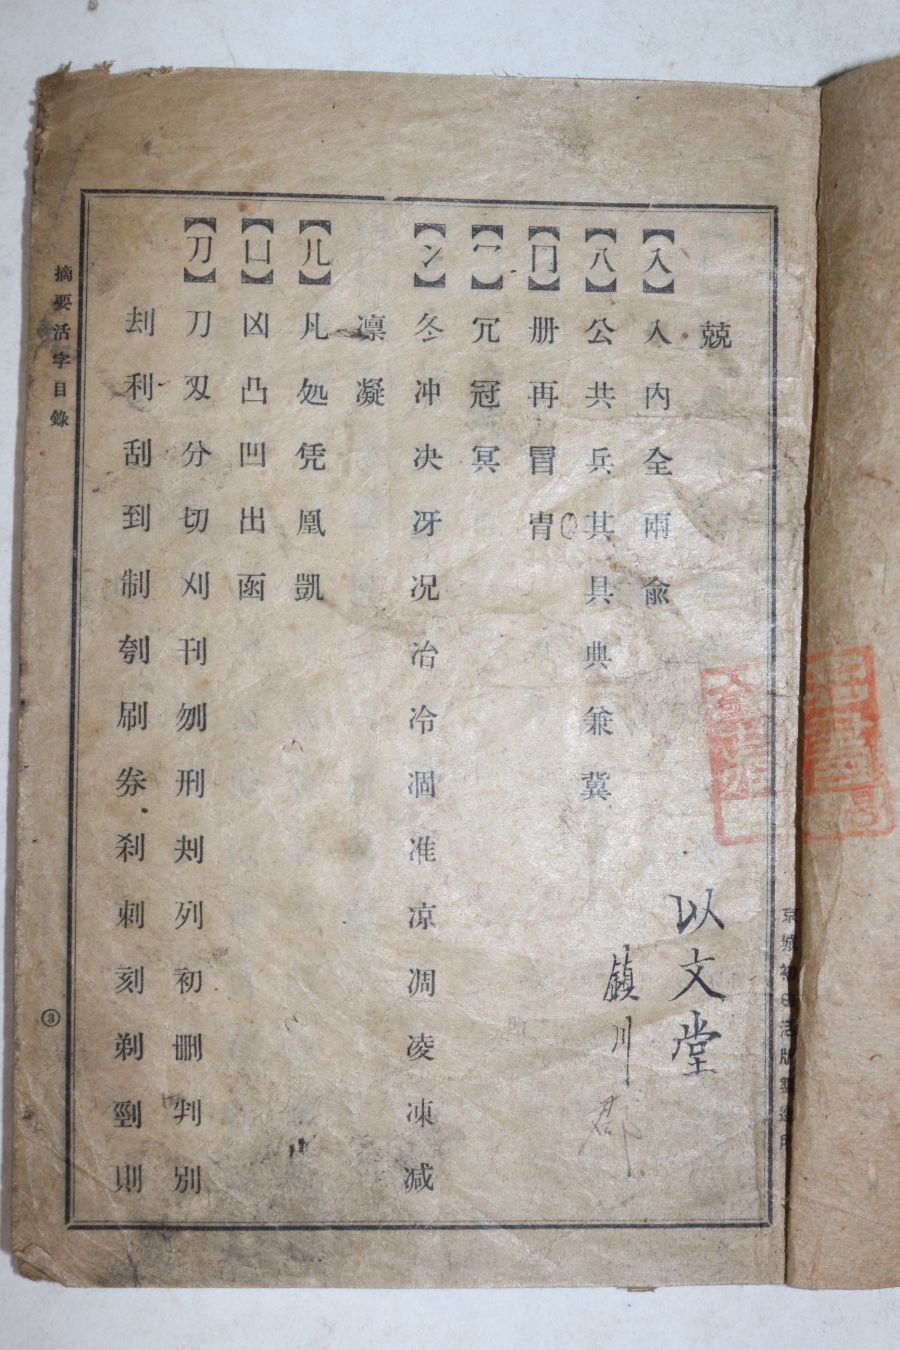 兢
【入】入內全兩兪
【八】公共兵其具典兼冀
【冂】册再冒冑
【冖】冗冠冥
【冫】冬冲决冴况冶冷凅准凉凋凌凍减
凛凝
【几】凡処凭凰凱
【凵】凶凸凹出函
【刀】刀刄分切刈刊刎刑刔列初刪判別
刦利刮到制刳刷券刹刺刻剃剄則
以文堂
鎭川郡
摘要活字目錄
3